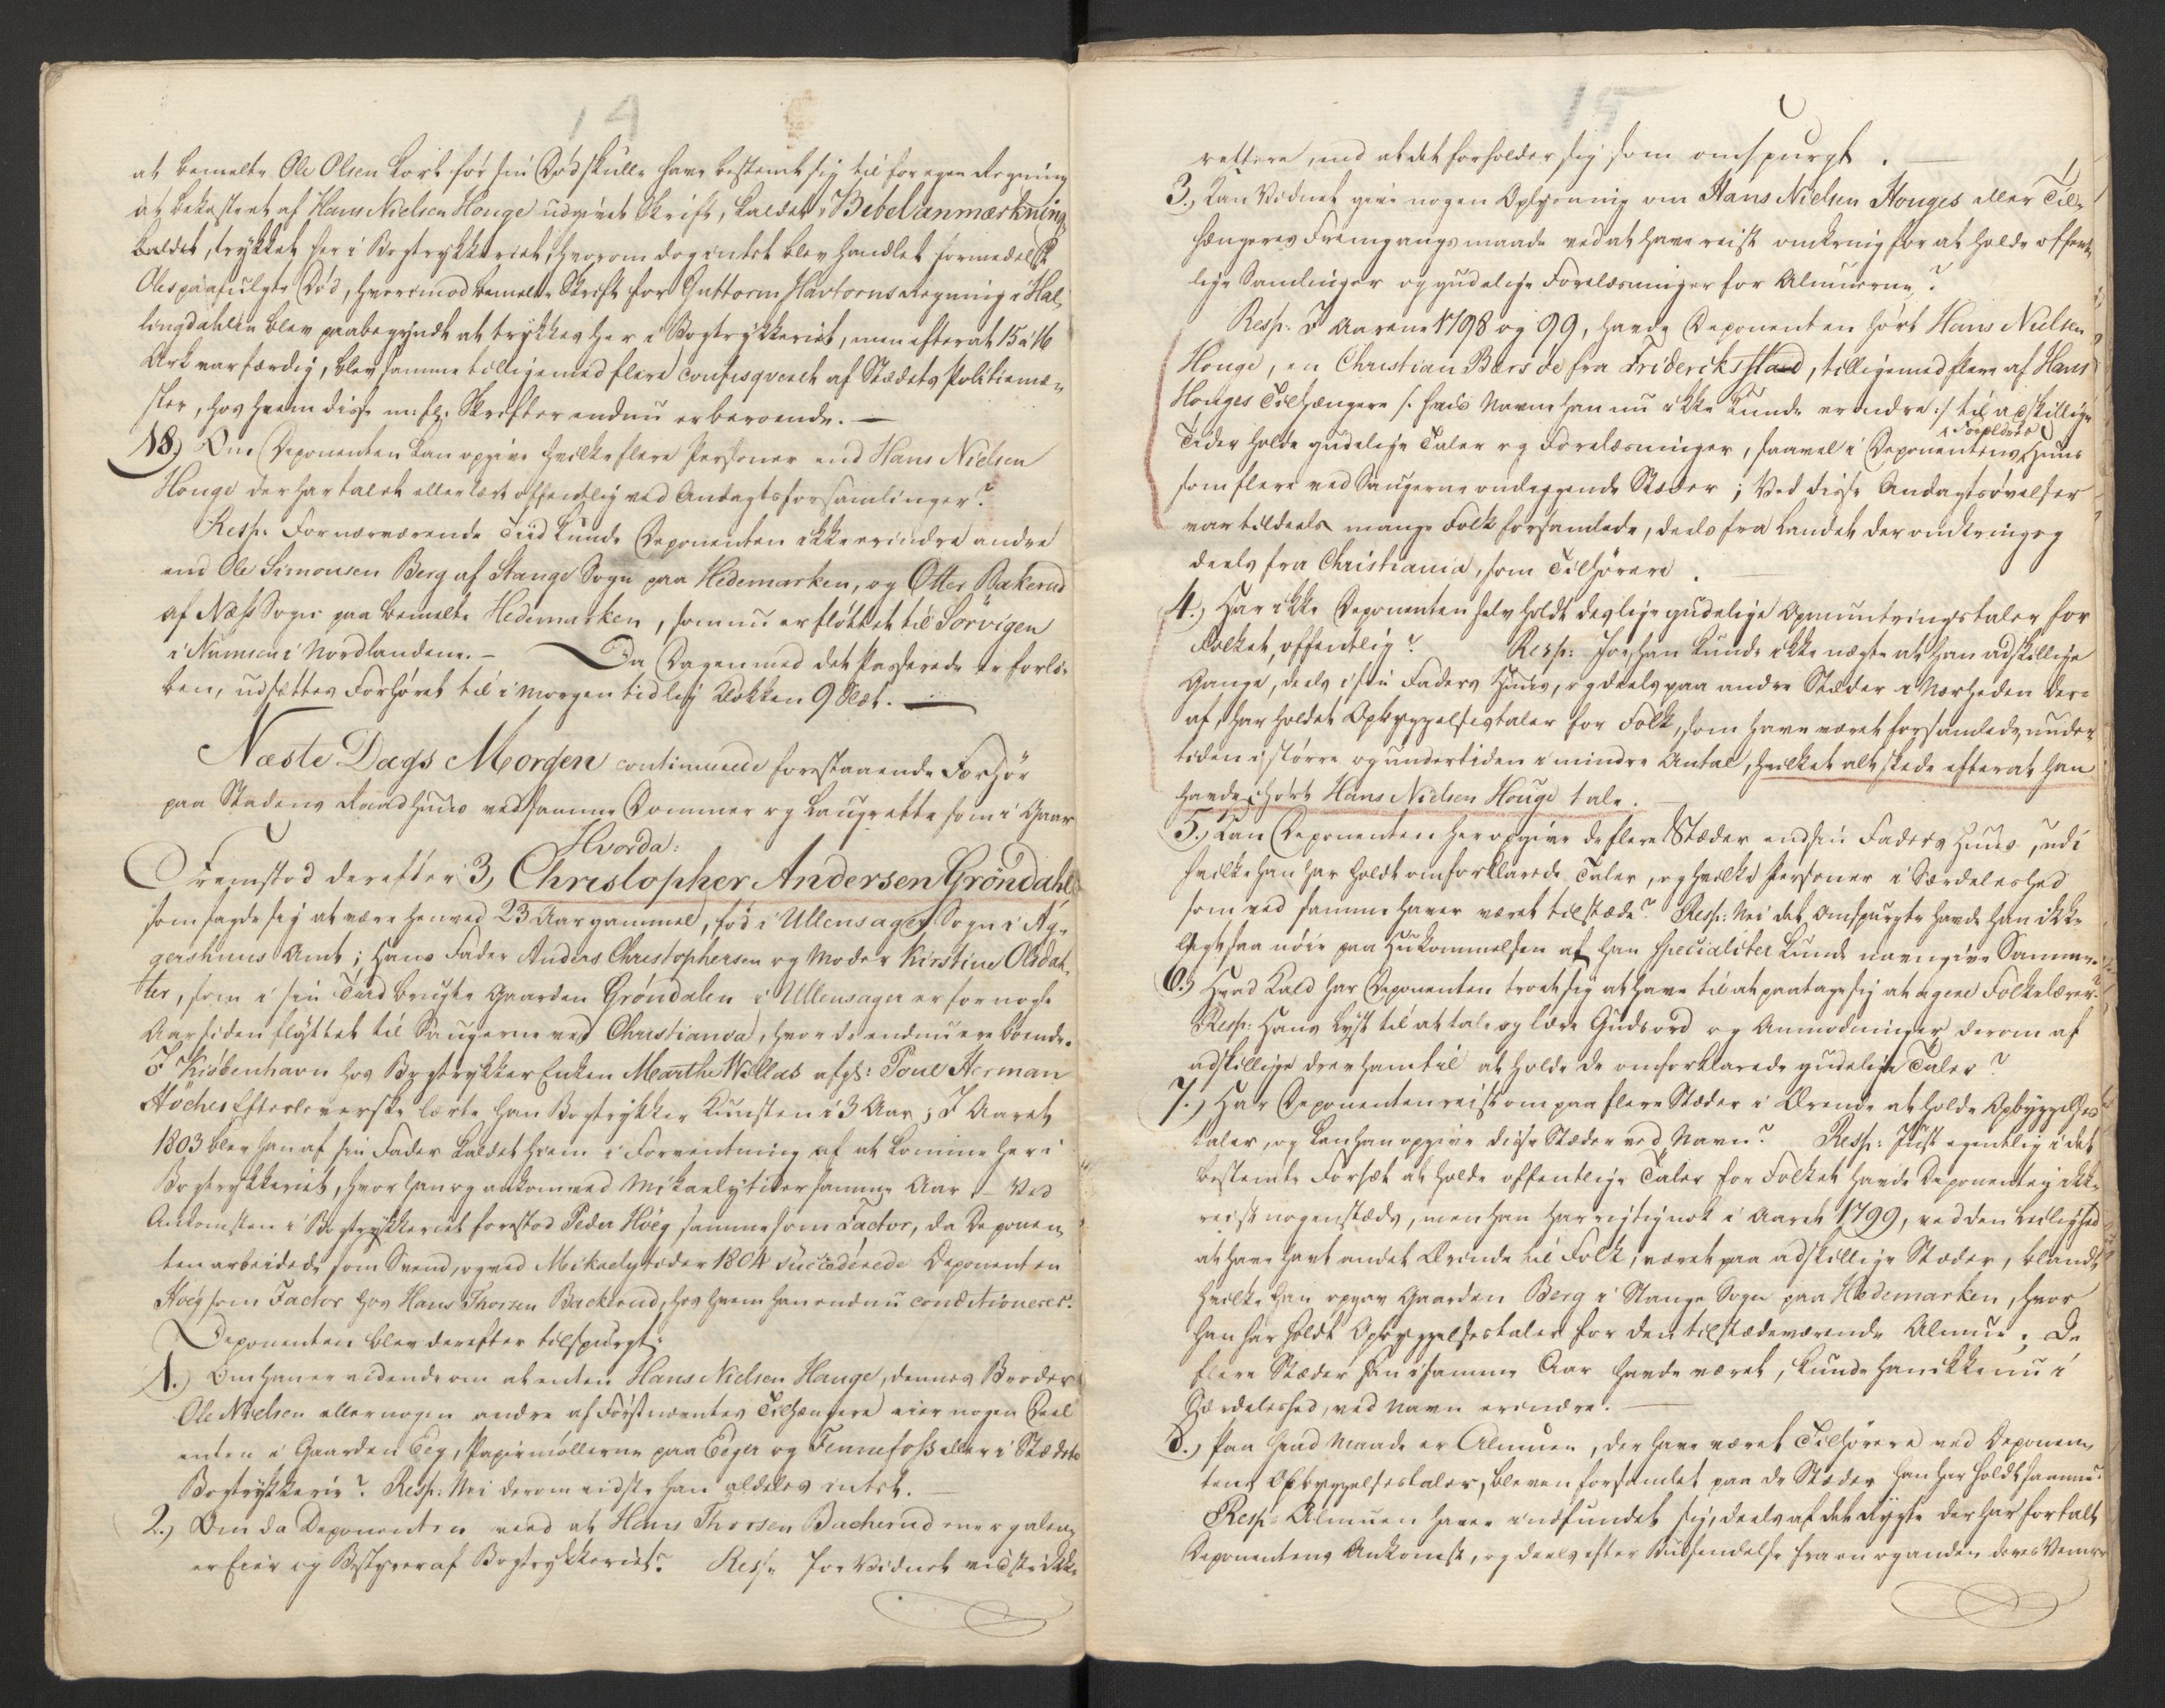 14
at bemelte Ole Olsen kort før sin Død skulle have bestemt sig til for egen Regning
at bekostet af Hans Nielsen Houge udgivet Skrift, kaldet: Bebelanmærkning
kaldet, trykket her i Bogtrykkeriet, hvorom dog intet blev handlet formedelst
Oles paafulgte Død, hvorimod bemelte Skrift for Guttorm Havtorns Regning i Hal„
lingdahlen blev paabegyndt at trykkes her i Bogtrykkeriet, men efterat 15 a 16
Ark var færdig, blev samme tilligemed flere confisqveret af Stædets Politieme„
ster, hos hvem disse m: fl: Skrifter endnu er beroende. —
18.) Om Deponenten kan opgive hvilke flere Personer end Hans Nielsen
Houge der har talet eller læst offentlig ved Andagtsforsamlinger?
Resp: For nærværende Tiid kunde Deponenten ikke erindre andre
end Ole Simonsen Berg af Stange Sogn paa Hedemarken, og Otter Bakerud
af Næss Sogn paa bemelte Hedemarken, som nu er fløttet til Sörvigen
i Numsen i Nordlandene. — Da Dagen med det Passerede er forlø„
ben, udsættes Forhøret til i morgen tidlig Klokken 9 Slet. —
Næste Dags Morgen continuerede forestaaende Forhør
paa Stadens Raadhuus ved samme Dommer og Laugrette som i Gaar
Hvorda:
Fremstod derefter 3, Christopher Andersen Gröndahl
som sagde sig at være henved 23 Aar gammel, fød i Ullensager Sogn i Ag„
gershuus Amt; Hans Fader Anders Christophersen og Moder Kirstine Olsdat„
ter, som i sin Tiid brugte Gaarden Gröndalen i Ullensager er for nogle
Aar siden flyttet til Saugerne ved Christiania, hvor de endnu ere boende.
I Kiöbenhavn hos Bogtrykker Enken Marthe Wellas afgl: Poul Herman
Höches Efterleverske lærte han Bogtrykker Kunsten i 3 Aar; I Aaret
1803 blev han af sin Fader kaldet hiem i Forventning af at komme her i
Bogtrykkeriet, hvor han og ankom ved Mikaelytider samme Aar — Ved
Ankomsten i Bogtrykkeriet forestod Peder Hoëg samme som Factor, da Deponen„
ten arbeidede som Svend, og ved Mikaelytider 1804 succederede Deponenten
Hoëg som Factor hos Hans Thorsen Backerud, hos hvem han endnu conditionerer.
Deponenten blev derefter tilspurgt:
1.) Om han er vidende om at enten Hans Nielsen Hauge, dennes Broder
Ole Nielsen eller nogen andre af Förstnævntes Tilhængere eier nogen Deel
enten i Gaarden Eeg, Papiirmöllerne paa Eeger og Fennefoss eller i Stædets
Bogtrykkerie? Resp: Nei derom vidste han aldeles intet. —
2.) Om da Deponenten veed at Hans Thorsen Bacherud ene og alene
er Eier og Bestyrer af Bogtrykkeriet? Resp: Joe Vidnet vidste ikke
15
rettere, end at det forholder sig som omspurgt. —
3., Kan Vidnet give nogen Oplysning om Hans Nielsen Houges eller Til„
hængeres Fremgangsmaade ved at have reist omkring for at holde offent„
lige Samlinger og gudelige Forelæsninger for Almuerne?
Resp: I Aarene 1798 og 99, havde Deponenten hört Hans Nielsen
Houge, en Christian Barsøe fra Friderickstad, tilligemed flere af Hans
Houges Tilhængere /: hvis Navne han nu ikke kunde erindre :/ til adskillige
Tider holde gudelige Taler og Forelæsninger, saavel i Deponentens
Forældres
Huus
som flere ved Saugerne omliggende Stæder; Ved disse Andagtsøvelser
var tildeels mange Folk forsamlede, deels fra Landet der omkring og
deels fra Christiania, som Tilhørere. —
4.) Har ikke Deponenten selv holdt deslige gudelige Opmuntringstaler for
Folket, offentlig? Resp: Joe han kunde ikke nægte at han adskillige
Gange, deels i sin Faders Huus, og deels paa andre Stæder i Nærheden der„
af, har holdet Opbyggelsestaler for Folk, som have været forsamlede, under„
tiden i större og undertiden i mindre Antal, hvilket alt skede efterat han
havde hört Hans Nielsen Houge tale. —
5.) Kan Deponenten her opgive de flere Stæder end sin Faders Huus, udi
hvilke han har holdt omforklarede Taler, og hvilke Personer i Særdeleshed
som ved samme haver været tilstæde? Resp: Nei det omspurgte havde han ikke
lagt saa nöie paa Hukommelsen at han specialiter kunde navngive Samme.
6.) Hvad Kald har Deponenten troet sig at have til at paatage sig at agere Folkelærer?
Resp: Hans Lyst til at tale og lære Guds ord og Anmodninger derom af
adskillige drev ham til at holde de omforklarede gudelige Taler?
7.) Har Deponenten reist om paa flere Stæder i Ærende at holde Opbyggelses
taler, og kan han opgive disse Stæder ved Navn? Resp: Just egentlig i det
bestemte Forsæt at holde offentlige Taler for Folket havde Deponenten ikke
reist nogenstæds, men han har rigtignok i Aaret 1799, ved den Leilighed
at have havt andet Ærinde til Folk, været paa adskillige Stæder, blandt
hvilke han opgav Gaarden Berg i Stange Sogn paa Hedemarken, hvor
han har holdt Opbyggelsestaler for den tilstædeværende Almue. De
flere Stæder han i samme Aar havde været, kunde han ikke nu i
Særdeleshed, ved Navn erindre. —
8.) Paa hvad Maade er Almuen, der have været Tilhørere ved Deponen„
tens Opbyggelsestaler, bleven forsamlet paa de Stæder han har holdt samme?
Resp: Almuen haver indfundet sig, deels af det Rygte der har fortalt
Deponentens Ankomst, og deels efter Budsendelse fra en og anden deres Venner